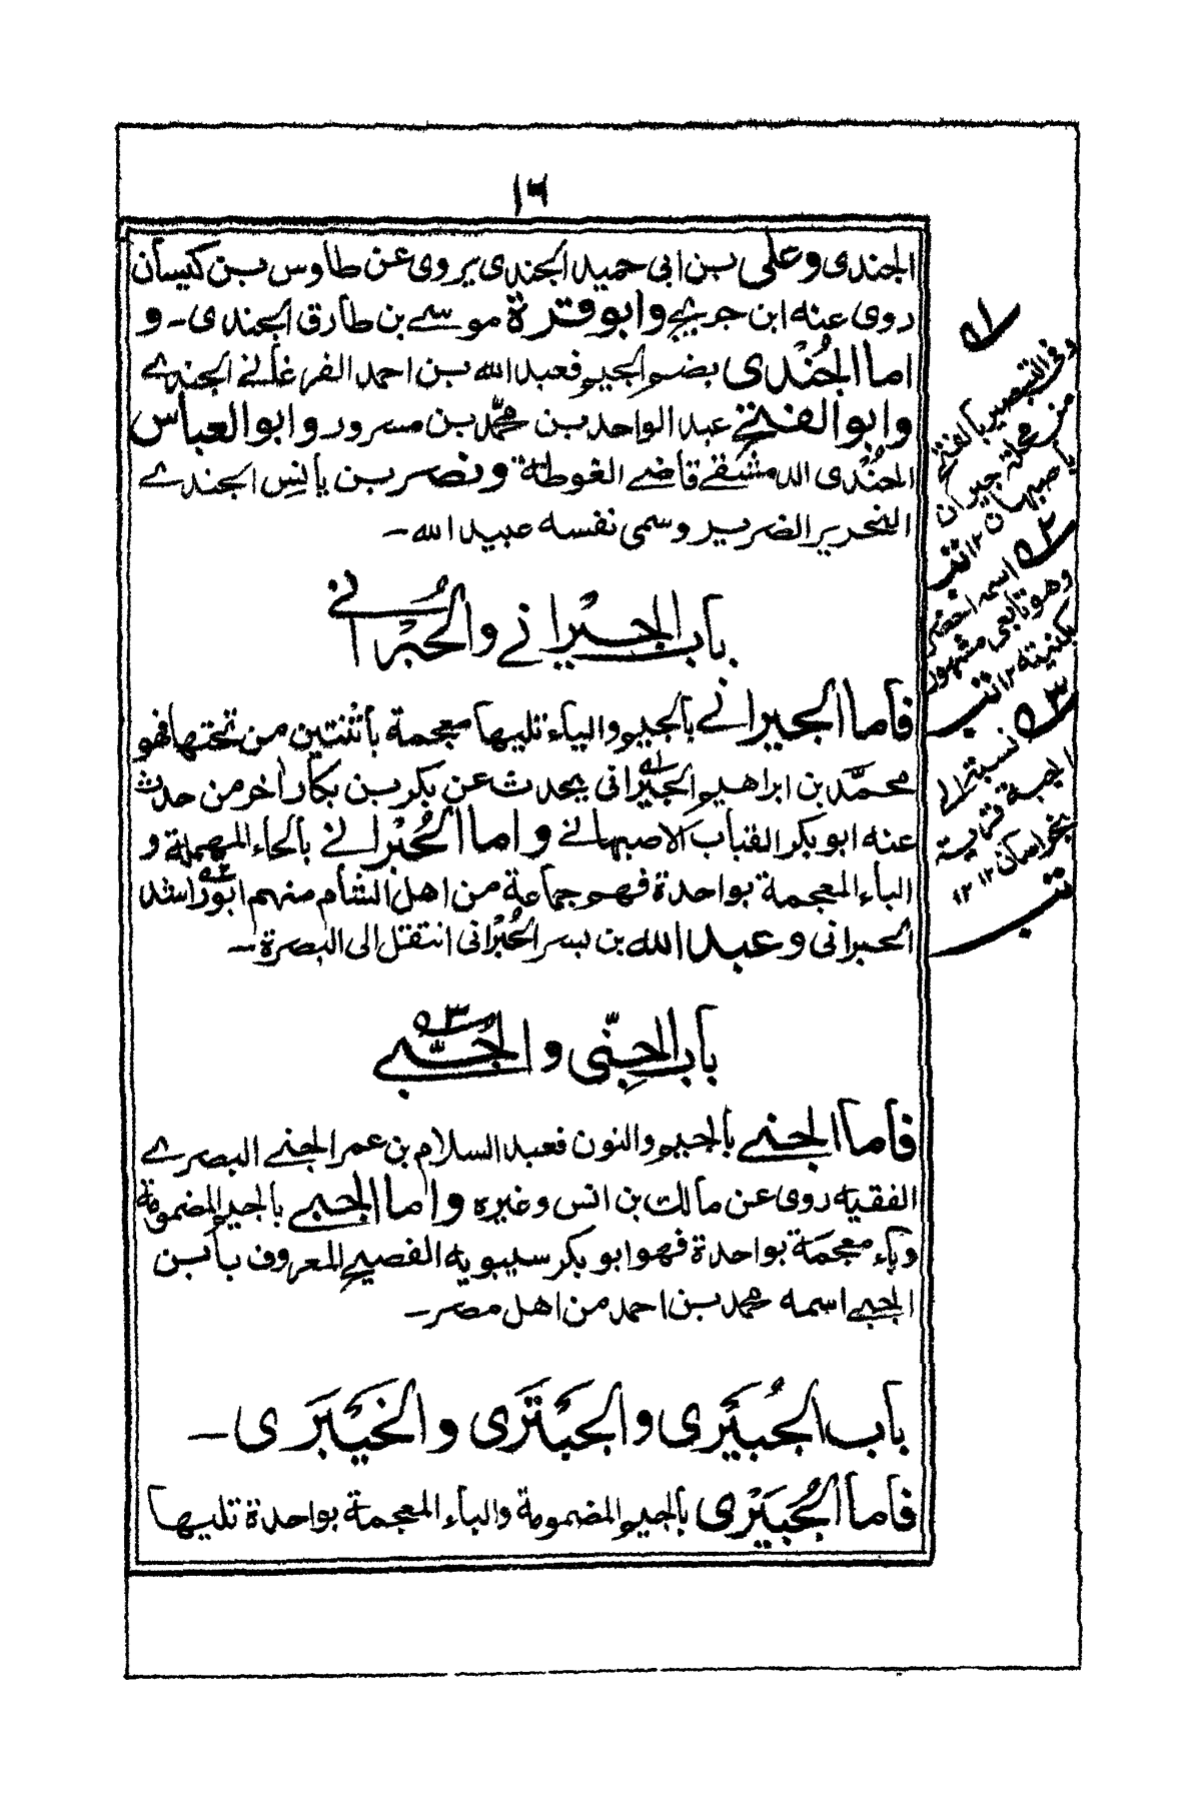 ١٦
الجندى وعلى بن ابى حميد الجندى يروى عن طاوس بن كيسان
روى عنه ابن جريج وابو قرة موسے بن طارق الجندى - و
اما الجُنْدى بضم الجيم فعبد الله بن احمد الفرغانے الجندے
وابو الفتح عبد الواحد بن محمّد بن مسرور وابو العباس
الجُنْدى الدمشقے قاضے الغوطة ونصر بن يانس الجندے
النحرير الضرير وسمى نفسه عبيد الله -
باب الجيرانے والحُبْرانے
فاما الجيرانے بالجيم والياء تليها معجمة باثنتين من تحتها فهو
محمّد بن ابراهيم الجيرانى ١ه يحدث عن بكر بن بكار اخر من حدث
عنه ابو بكر القباب الاصبهانے واما الحُبْرانے بالحاء المهملة و
الباء المعجمة بواحدة فهم جماعة من اهل الشام منهم ابو راشد ٢ه
الحبرانى وعبد الله بن بسر الحُبْرانى انتقل الى البصرة -
باب الجِنّى والجُبّے ٣ه
فاما الجنے بالجيم والنون فعبد السلام بن عمر الجنے البصرے
الفقيه روى عن مالك بن انس وغيره واما الجبے بالجيم المضمومة
وباء معجمة بواحدة فهو ابو بكر سيبويه الفصيح المعروف بابن
الجبے اسمه محمد بن احمد من اهل مصر -
باب الجُبَيْرى والجَبْتَرى والخَيْبَرى -
فاما الجُبَيْرى بالجيم المضمومة والباء المعجمة بواحدة تليها
١ه
وفى التبصير بالفتح
من محلة جيران
باصبهان ١٢ تب
٢ه اسمه اخضر
وهو تابعى مشهور
بكنيته ١٢ تب
٣ه نسبة الى
الجبة قرية
بخراسان ١٢ ١٢
تب